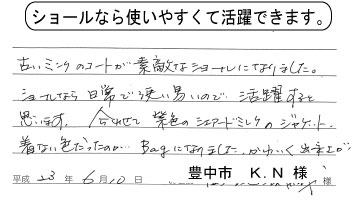 ショールなら使いやすくて活躍できます。
古いミンクのコートが素敵なショールになりました。
ショールなら日常で使い易いので活躍すると
思います。合わせて紫色のシェアードミンクのジャケット。
着ない色だったのが… Bagになりました。かわいく出来上が
平成 23年 6月10日 豊中市 K.N 様
様